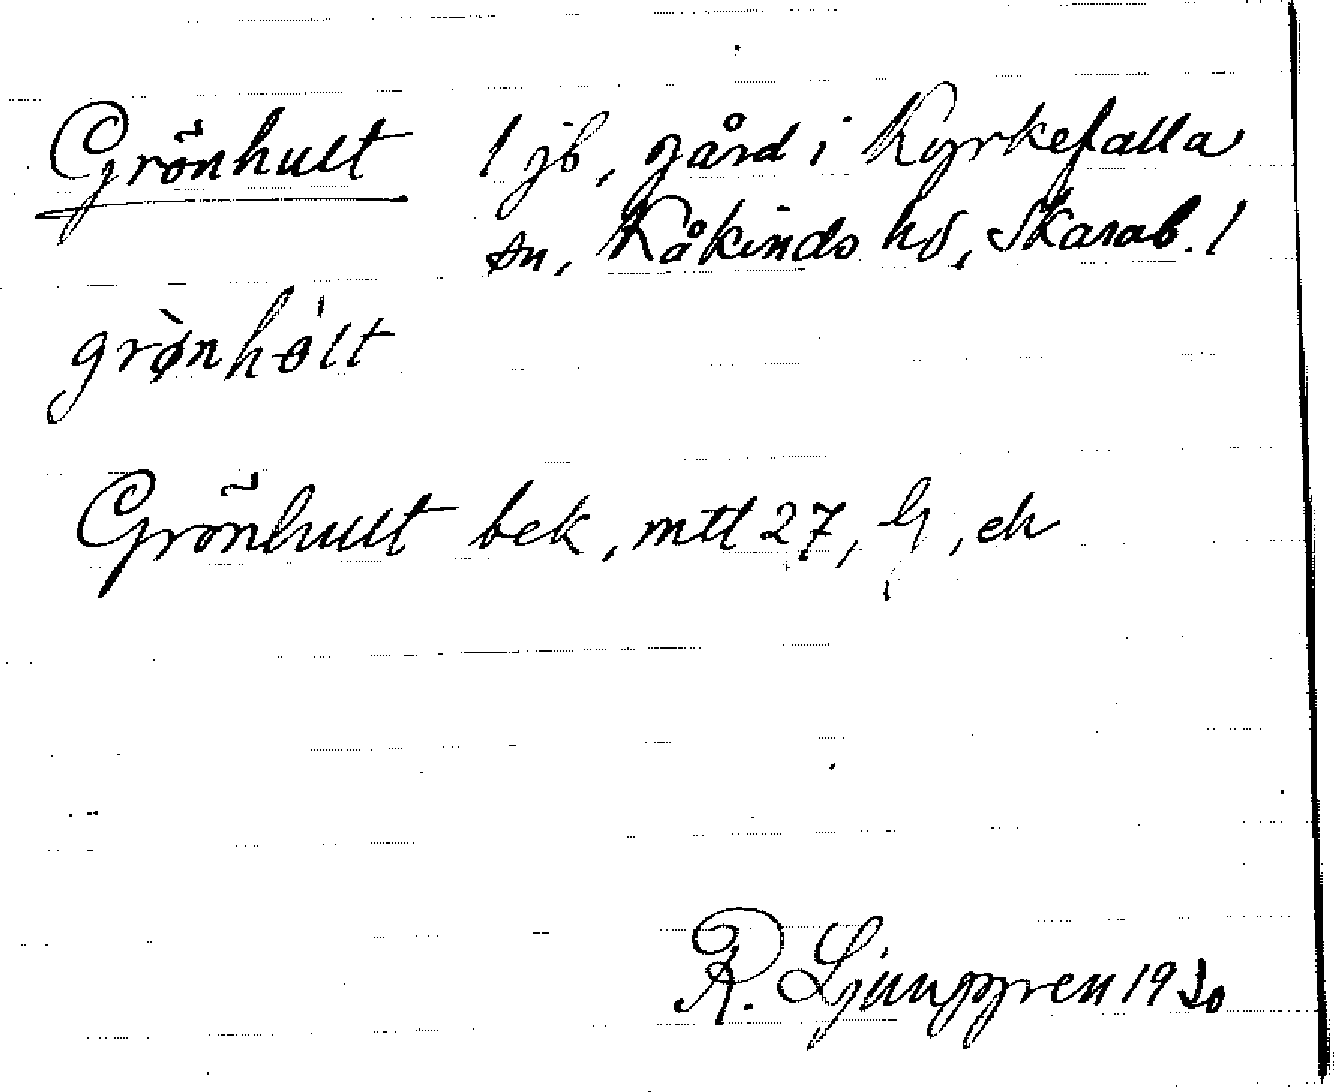 Grönhult 1 jb, gård i Kyrkefalla
sn, Kåkinds hd, Skarab. l
grø̀nhólt
Grönhult bek, mtl 27, G, ek
R. Ljunggren 1930